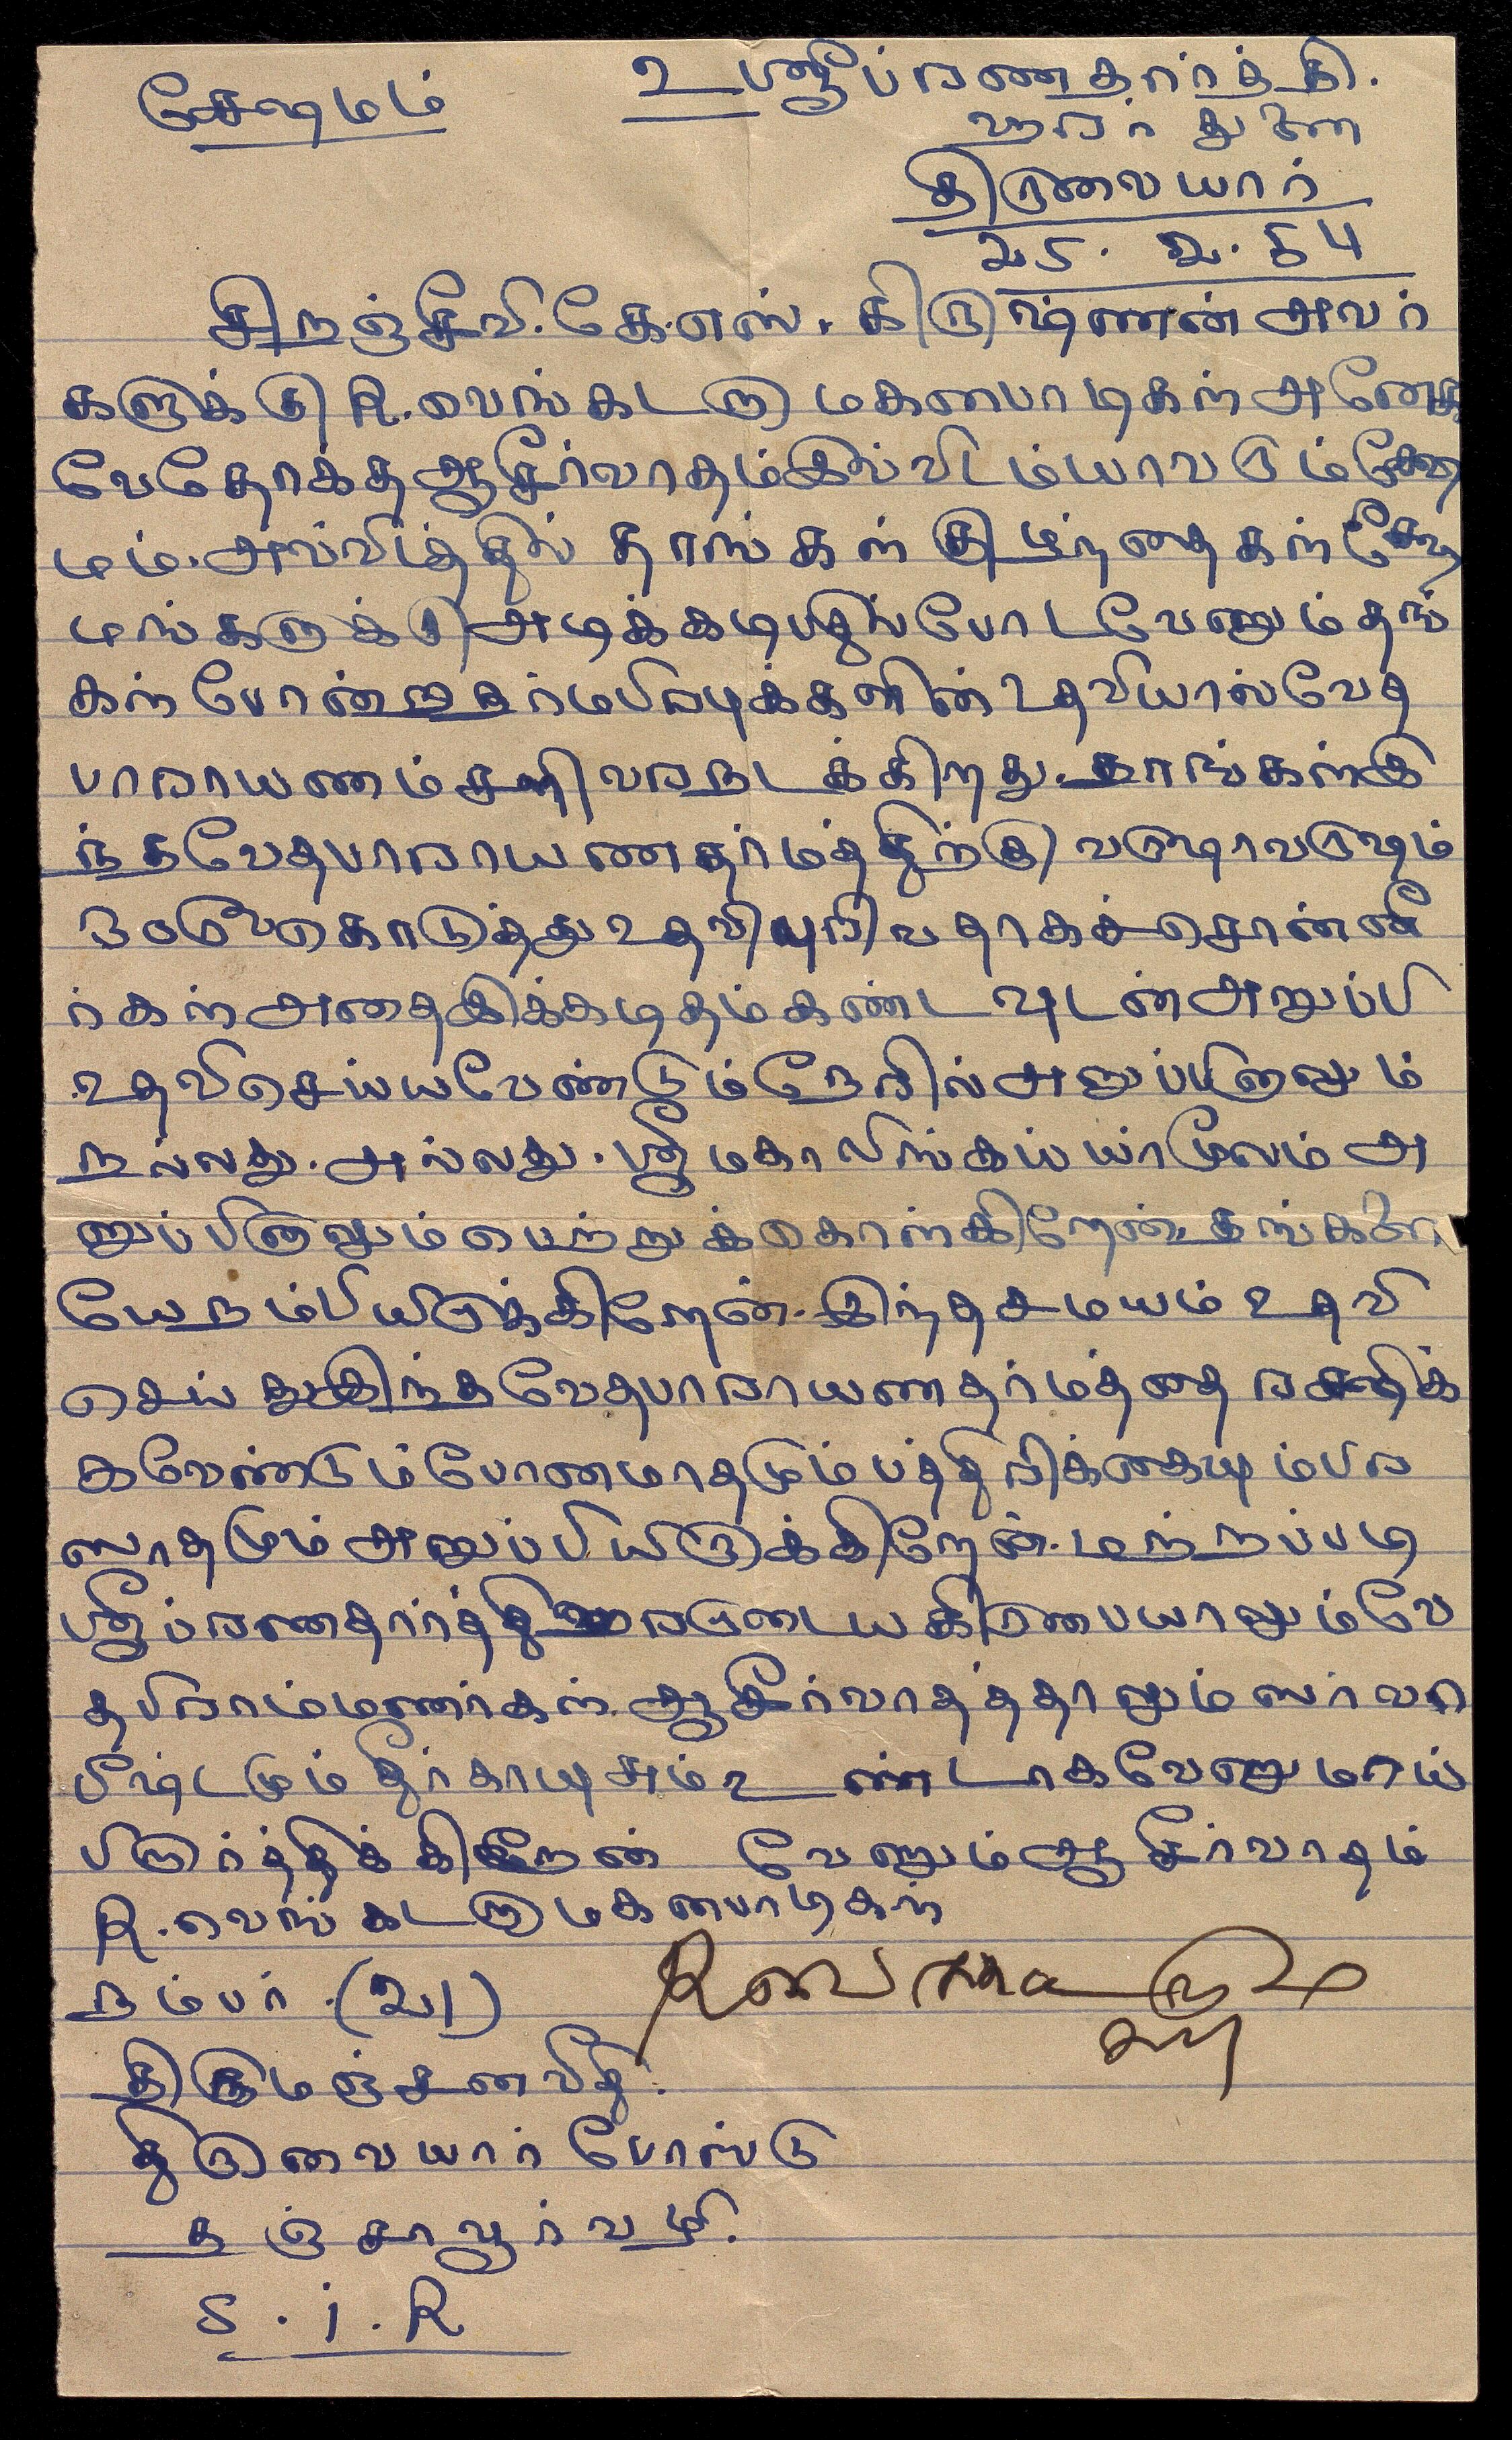 க்ஷேமம்
உ ஸ்ரீப்ரணதார்த்தி
ஹரர் துணை
திருவையார்
25. 2. 54
சிரஞ்சீவி. கே. எஸ். கிருஷ்ணன் அவர்
களுக்கு R. வெங்கடராம கனபாடிகள் அனேக
வேதோக்த ஆசீர்வாதம் இவ்விடம் யாவரும் க்ஷே
மம். அவ்விடத்தில் தாங்கள் குழந்தைகள் க்ஷே
மங்களுக்கு அடிக்கடி பதில் போடவேணும் தங்
கள் போன்ற தர்மபிரபுக்களின் உதவியால் வேத
பாராயணம் சரிவர நடக்கிறது. தாங்கள் இ
ந்த வேதபாராயண தர்மத்திற்கு வருஷாவருஷம்
கொடுத்து உதவி புரிவதாகச் சொன்னீ
ர்கள் அதை இக்கடிதம் கண்டவுடன் அனுப்பி
உதவி செய்யவேண்டும் நேரில் அனுப்பினாலும்
நல்லது. அல்லது. ஸ்ரீ மகாலிங்கய்யர் மூலம் அ
னுப்பினாலும் பெற்றுக்கொள்கிறேன். தங்களை
யே நம்பியிருக்கிறேன். இந்த சமயம் உதவி
செய்து இந்த வேதபாராயண தர்மத்தை ரக்ஷிக்
கவேண்டும் போனமாதமும் பத்திரிக்கையும் பிர
ஸாதமும் அனுப்பியிருக்கிறேன். மற்றப்படி
ஸ்ரீப்ரணதார்த்தி ஹரருடைய கிருபையாலும் வே
த பிராம்மணர்கள் ஆசீர்வாதத்தாலும் ஸர்வா
பீஷ்டமும் தீர்காயுசும் உண்டாகவேணுமாய்
பிரார்த்திக்கிறேன் வேணும் ஆசீர்வாதம்
R. வெங்கடராம கனபாடிகள்
நம்பர். (21)
திருமஞ்சன வீதி.
திருவையார் போஸ்டு
தஞ்சாவூர் வழி.
S. I. R